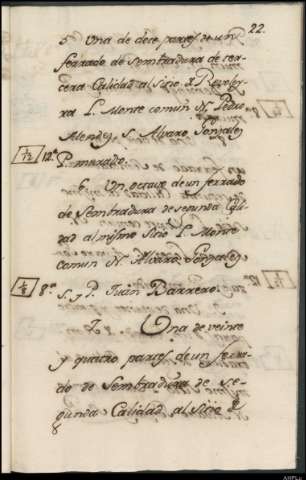 22.
5 Una de doce partes de un
ferrado de Sembradura de ter-
cera Calidad al Sitio
L. Monte comun N. Pedro
Mendez S. Alvaro Gonzalez
1/12 12.º P. murado
6 Un octavo de un ferrado
de Sembradura de segunda Cali-
dad al mismo Sitio L. Monte
comun N. Alvaro Gonzalez
1/8 8.º S. y P. Juan Barrero
7 Una de veinte
y quatro partes de un ferra-
do de Sembradura de se-
gunda Calidad al Sitio
8